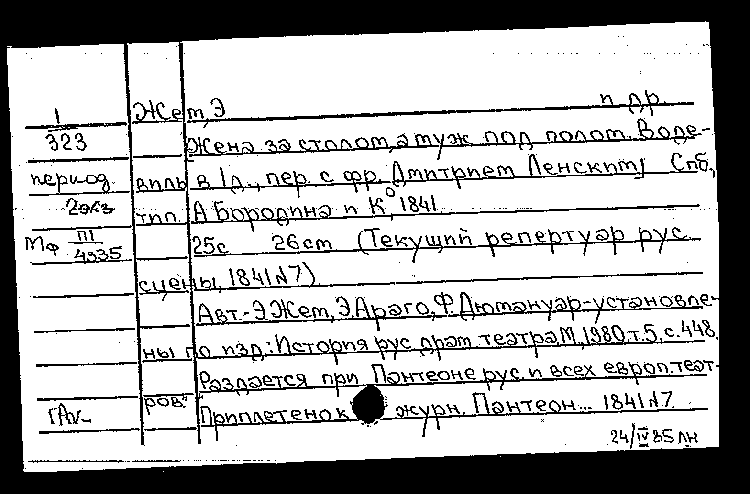 1 Жет, Э и др.
323 Жена за столом, а муж под полом. Воде-
период. виль в 1 д., пер. с фр. Дмитрием Ленским Спб.,
2экз тип. А Бородина и К°, 1841
Мф III/4935 25с 26см (Текущий репертуар рус.
сцены, 1841 №7)
Авт.-Э Жем, Э. Араго, Ф. Дюмануар-установле-
ны по изд.: История рус. драм. театра М, 1980, т. 5, с. 448.
Раздается при Пантеоне рус. и всех европ. теат-
ров"
Приплетено к журн. Пантеон... 1841 №7
24/IV 85 ЛН